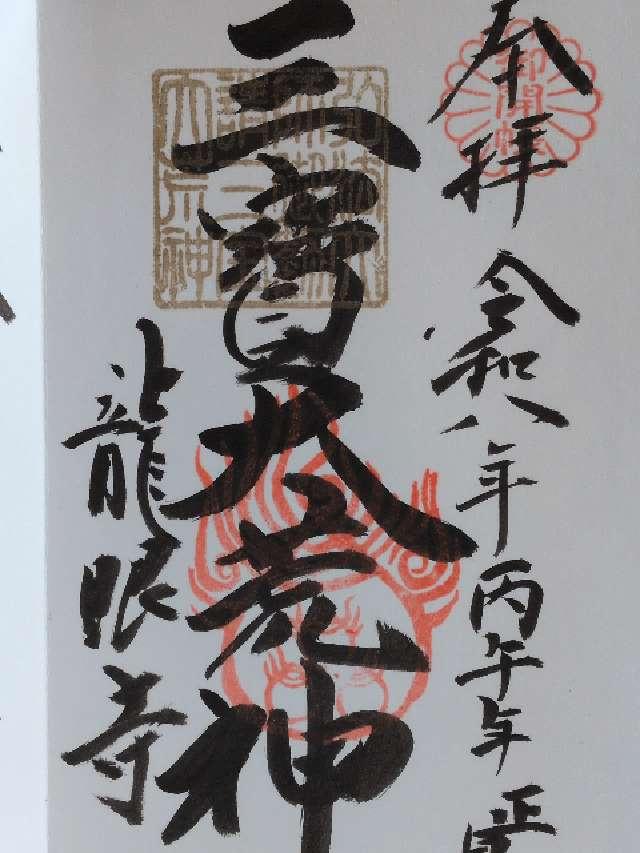 奉拝
令和八年丙午年
三寳大荒神
龍眼寺
御開帳